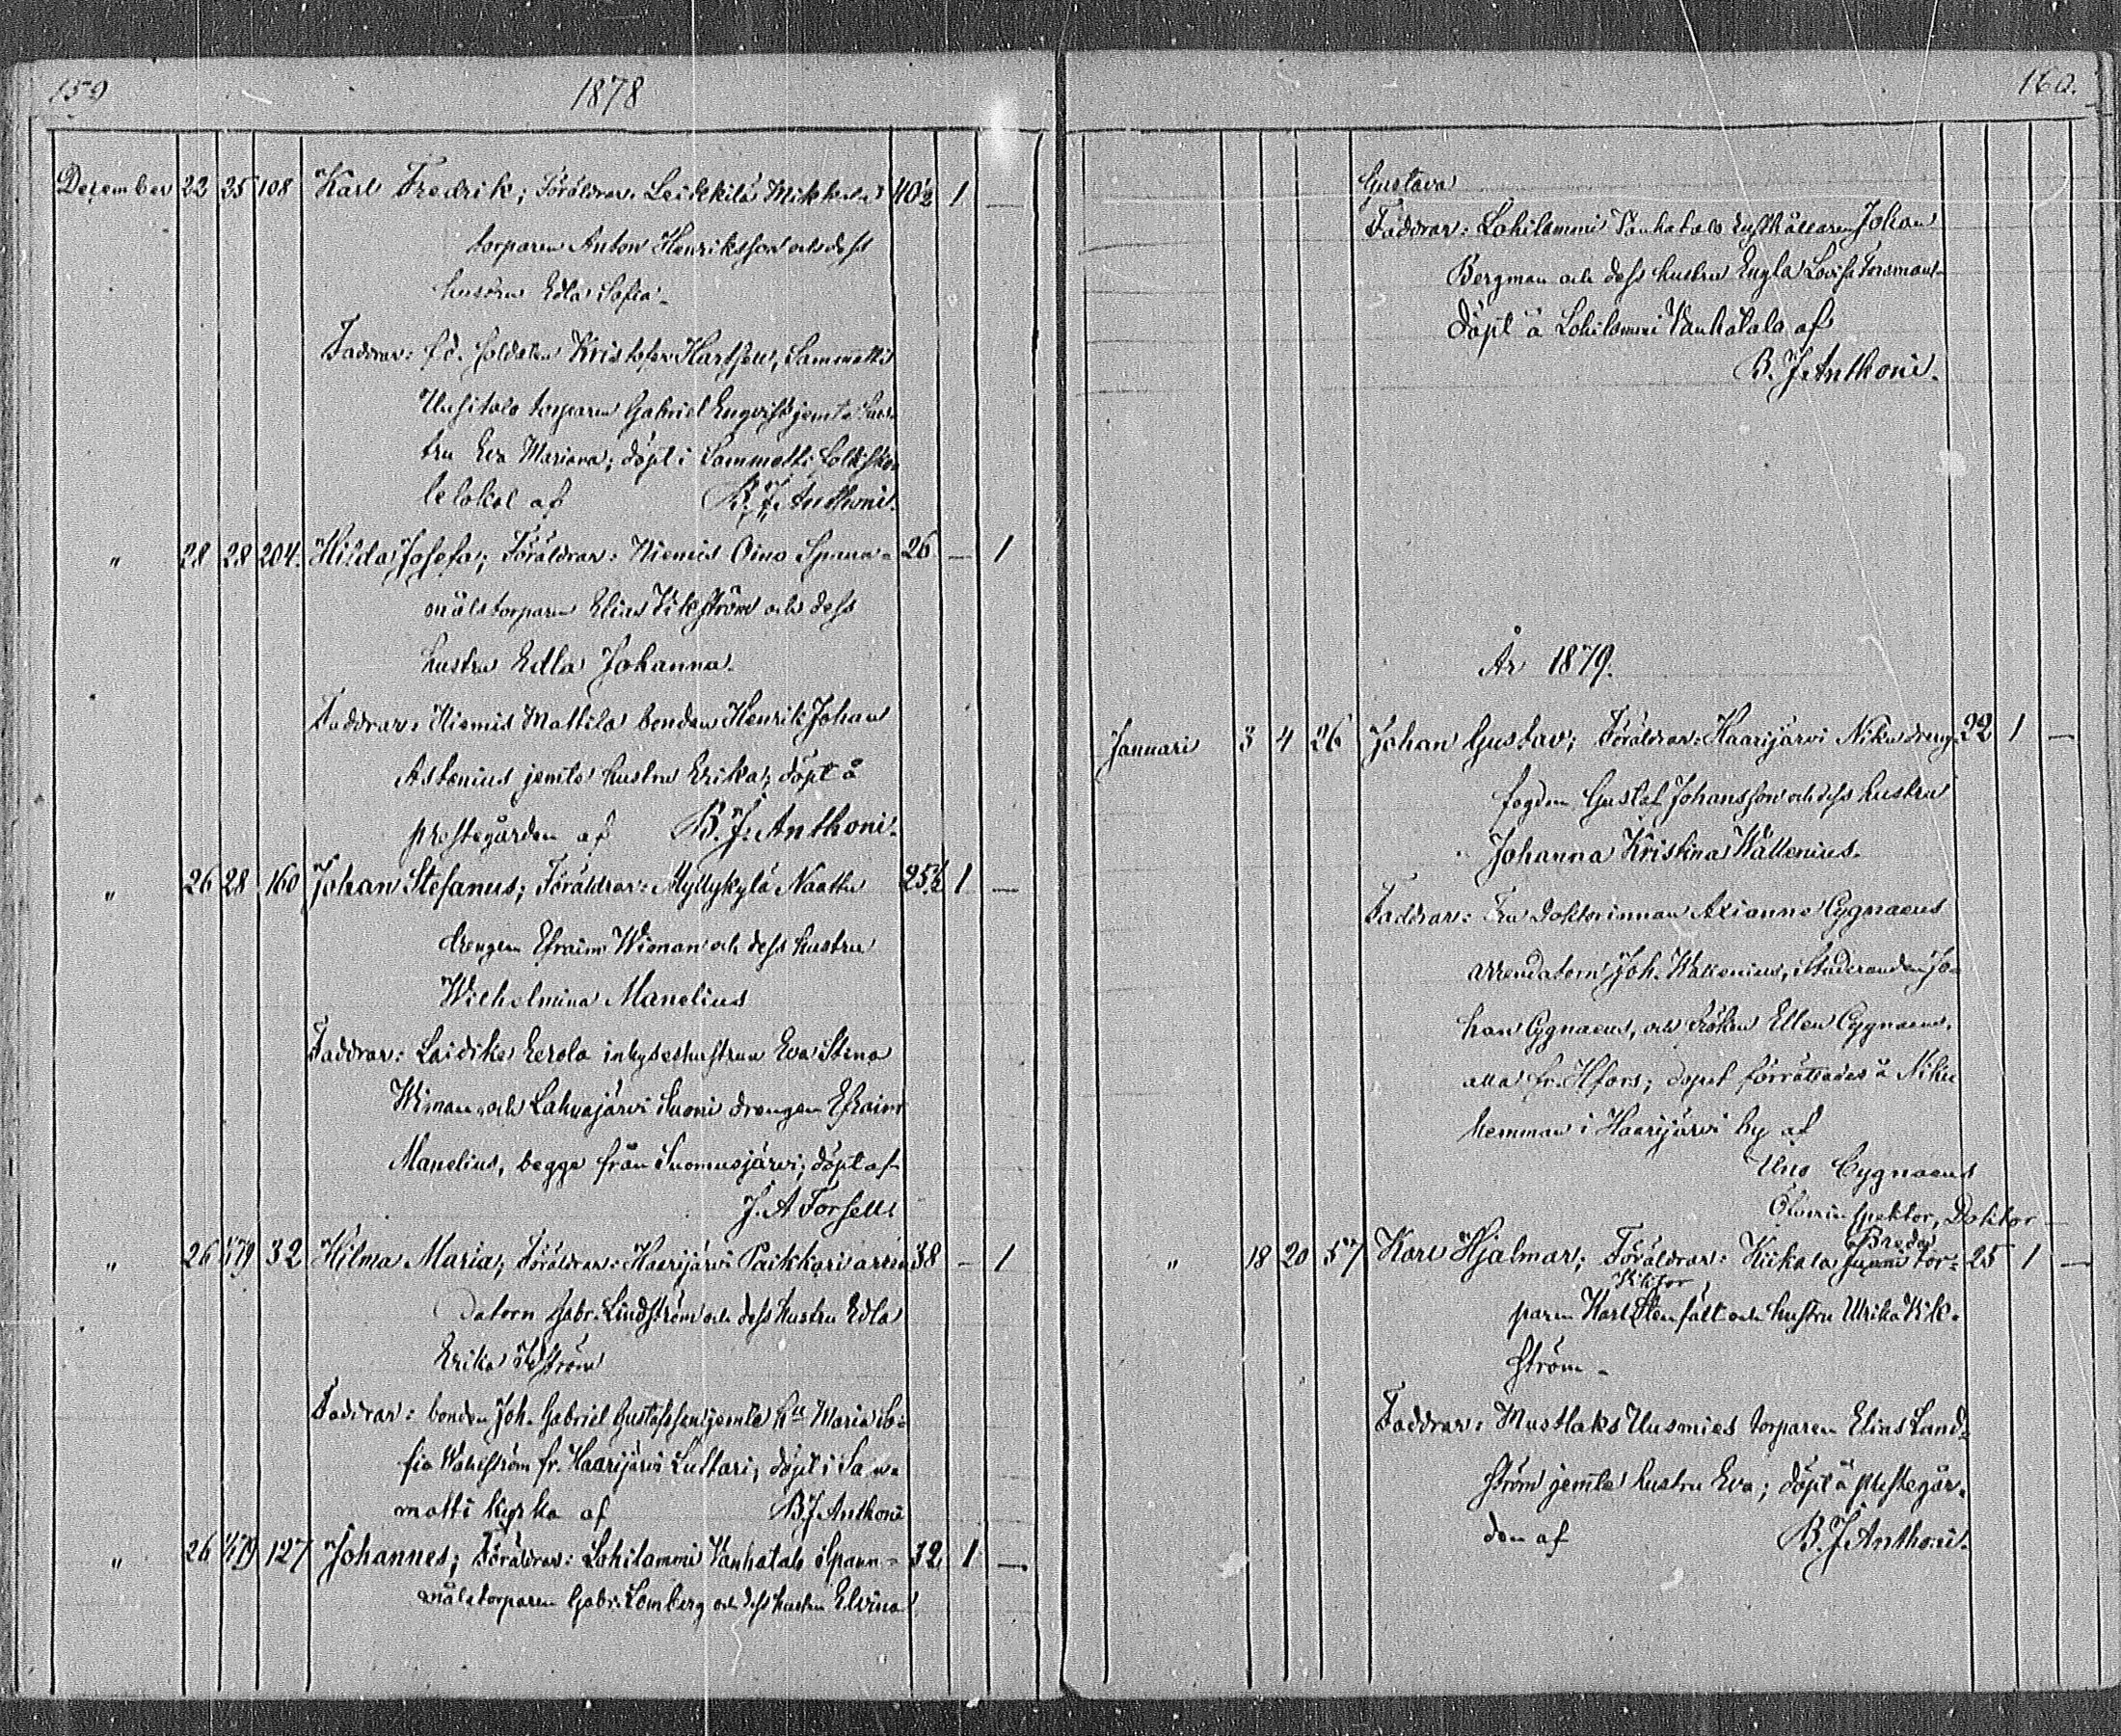 159
1878
Dezember 22 25 108 Karl Fredrik; Föräldrar: Leikkilä Mikkola 40½ 1 —
torparen Anton Henriksson och dess
hustru Edla Sofia.
Faddrar: f.d. soldaten Kristofer Hartzell, Sammatti
Uusitalo torparen Gabriel Engvist jemte hus-
tru Eva Mariana; döpt i Sammatti folksko
lelokal af B. J. Anthoni.
" 28 28 204. Hilda Josefa; Föräldrar: Niemis Oino Spann- 26 — 1
målstorparen Elias Vikström och dess
hustru Edla Johanna.
Faddrar: Niemis Mattila bonden Henrik Johan
Astenius jemte hustru Erika; döpt å
prestegården af B. J. Anthoni.
" 26 28 160 Johan Stefanus; Föräldrar: Myllykylä Naattu 25½ 1 —
drengen Efraim Wiman och dess hustru
Wilhelmina Manelius
Faddrar: Laidike Eerola inhyseshustrun Eva Stina
Wiman och Lahnajärvi Suoni drengen Efraim
Manelius, begge från Suomusjärvi; döpt af
J. A Forsell
" 26 1/1 79 32 Hilma Maria; Föräldrar: Haarijärvi Paikkari arren 38 — 1
datorn Gabr. Lindström och dess hustru Edla
Erika
Faddrar: bonden Joh. Gabriel Gustafsson jemte hu Maria So-
fia Wahlström fr. Haarijärvi Luttari; döpt i Sam
matti kyrka af B J Anthoni
" 26 1/1 79 127 Johannes; Föräldrar: Lohilammi Vanhatalo Spann- 32 1 —.
målstorparen Gabr. Lomberg och dess hustru Elvina
160.
Gustava
Faddrar: Lohilammi Vanhatalo Johan
Bergman och dess hustru Engla Lovisa Forsman
döpt å Lohilammi Vanhatalo af
B. J. Anthoni.
År 1879.
Januari 3 4 26 Johan Gustav; Föräldrar: Haarijärvi Niku dreng- 22 1 —
fogden Gustaf Johansson och dess hustru
Johanna Kristina Wallenius.
Faddrar: Fru Doktorinnan Axianne Cygnaeus
arrendatorn Joh. Wallenius, Studeranden Jo-
han Cygnaeus, och fröken Ellen Cygnaeus,
alla fr. Hfors; dopet förrättades å Niku
hemman i Haarijärvi by af
Uno Cygnaeus
Öfverinspektor, Doktor
" 18 20 57 Karl Hjalmar; Föräldrar: Kiikala Breda tor- 25 1 —
Viktor
paren Karl Stenfält och hustru Ulrika Vik-
ström.
Faddrar: Mustlaks Uusmies torparen Elias Lund-
ström jemte hustru Eva; döpt å prestegår-
den af B. J Anthoni.